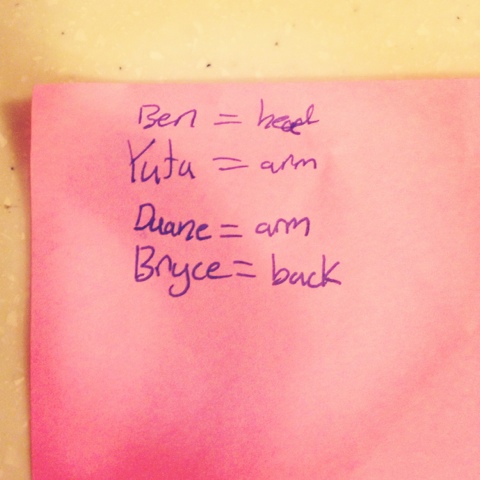 Ben = head
Yuta = arm
Duane = arm
Bryce = back